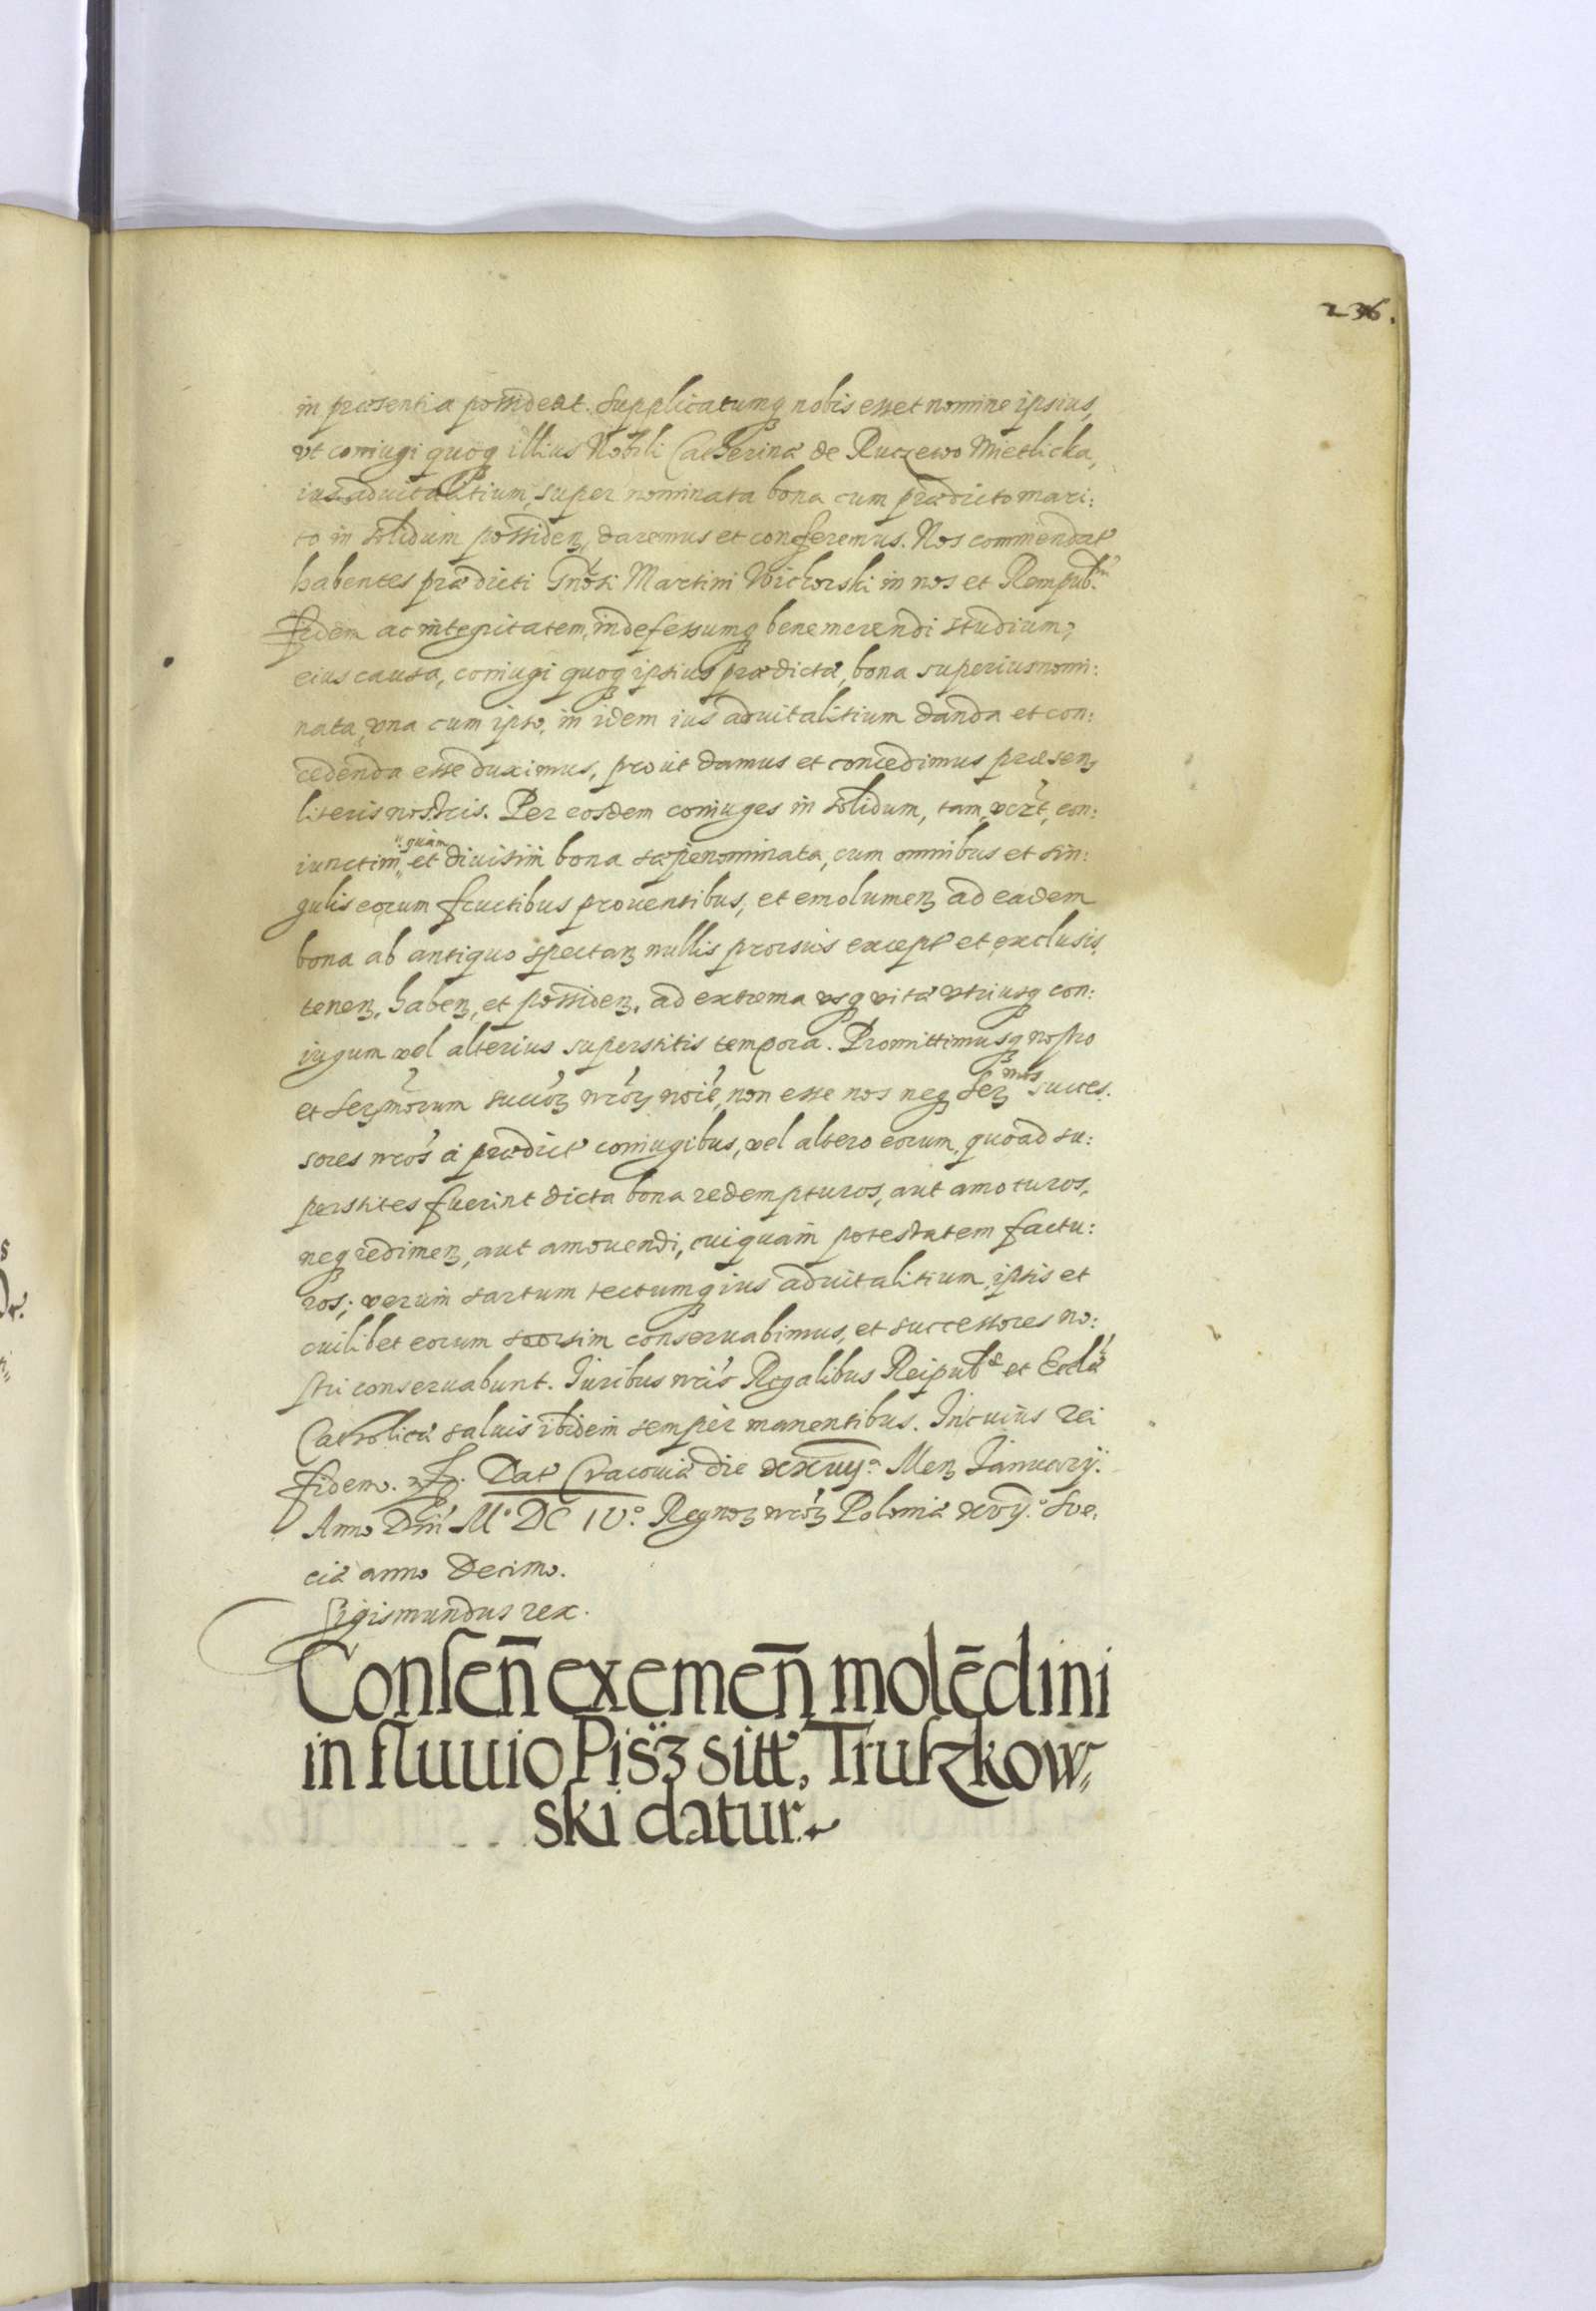 236.
in præsentia possideat. Supplicatumq nobis esset nomine ipsius,
vt coniugi quoq illius Nobili Catherinæ de Ruczewo Mietlicka,
ius aduitalitium, super nominata bona cum prædicto mari:
to in solidum possiden, daremus et conferemus. Nos commendat
habentes prædicti Gnosi Martini Wichorski in nos et Rempub.
fidem ac integritatem, indefessumq bene merendi studium,
eius causa, coniugi quoq ipsius prædictæ, bona superius nomi:
nata, vna cum ipso, in idem ius aduitalitium danda et con:
cedenda esse duximus, prout damus et concedimus præsen
literis nostris. Per eosdem coniuges in solidum, tam, con:
iunctim, quàm et diuisim bona sæpenominata, cum omnibus et sin:
gulis eorum fructibus prouentibus, et emolumen ad eadem
bona ab antiquo spectan nullis prorsus except et exclusis.
tenen, haben, et possiden, ad extrema vsq vitæ vtriusq con:
iugum vel alterius superstitis tempora. Promittimusq nostro
et Sermorum succor nror noie, non esse nos neq Ser mos succes.
sores nros à prædict coniugibus, vel altero eorum, quoad su:
perstites fuerint dicta bona redempturos, aut amoturos,
neq redimen, aut amouendi, cuiquam potestatem factu:
ros; verùm sartum tectumq ius aduitalitium ipsis et
cuilibet eorum seorsim conseruabimus, et successores no:
stri conseruabunt. Juribus nris Regalibus Reipub et Eccliæ
Catholicæ saluis ibidem sempèr manentibus. In cuius rei
fidem. Dat Cracouiæ die xxvij. Men Januarij.
Anno Dni M° DC IV° Regnor nror Poloniæ xvij° Sue,
ciæ anno Decimo.
Sigismundus rex.
Consen̄ exemen̄ molēdini
in fluuio Pissz sitt, Truszkow
ski datur.